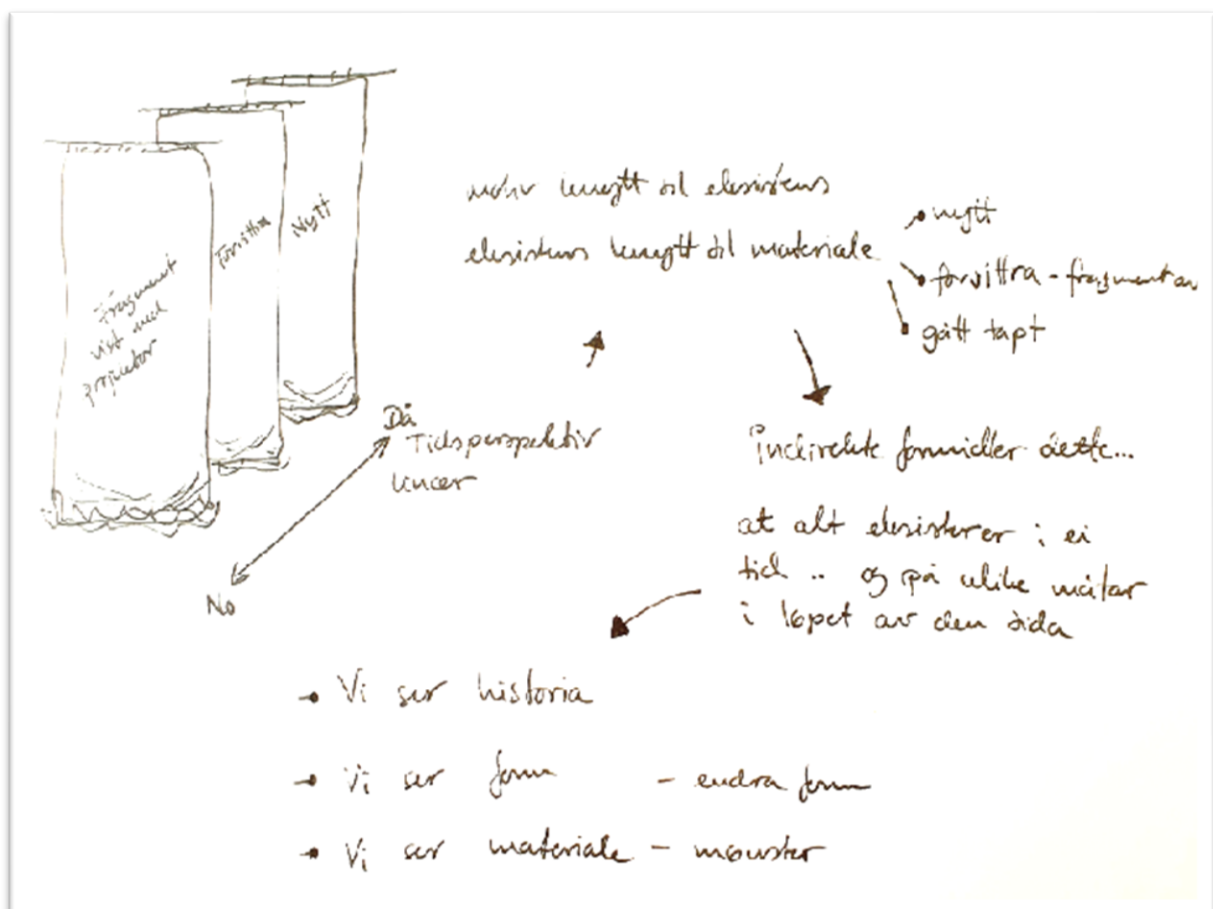 Fragment
vist med
projektor
Forvitra
Nytt
knytt til eksistens
eksistens knytt til materiale
nytt
forvitra - fragment av
gått tapt
Då
Tidsperspektiv
No
Indirekte formidler dette...
at alt eksisterer i ei
tid .. og på ulike måtar
i løpet av den tida
Vi ser historia
Vi ser form - endra form
Vi ser materiale - mønster